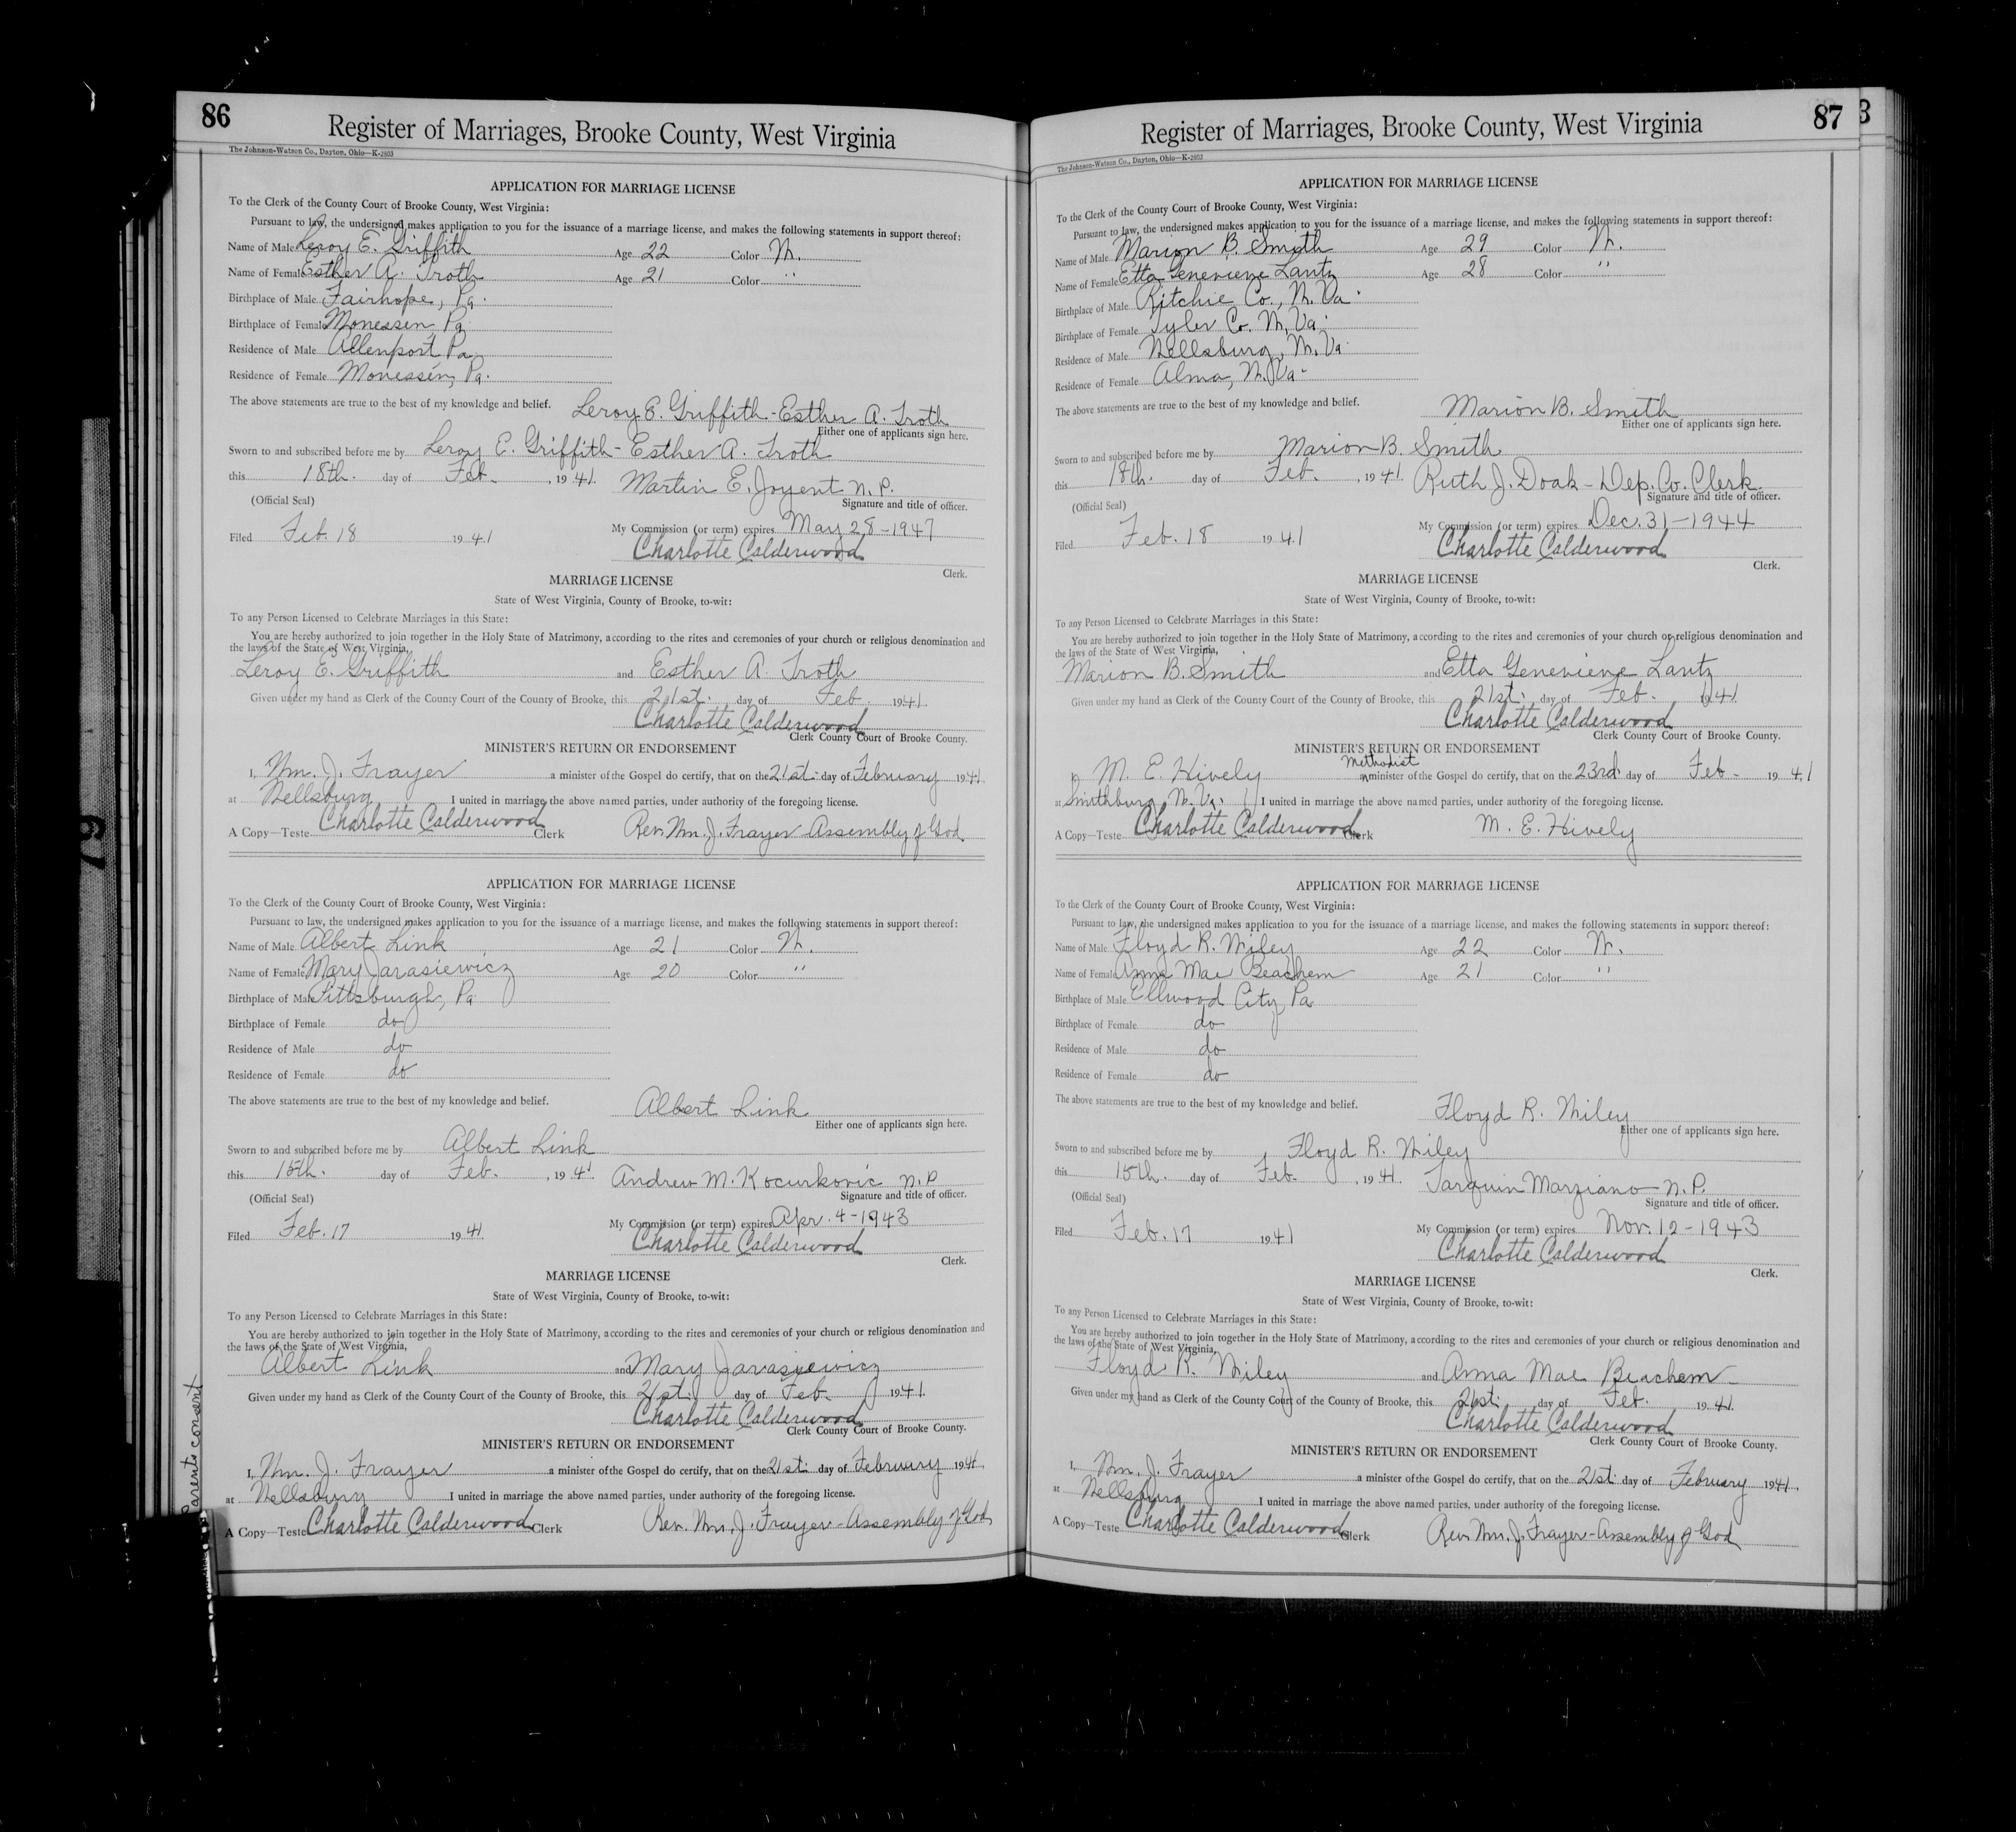 86
Register of Marriages, Brooke County, West Virginia
The Johnson-Watson Co., Dayton, Ohio—K-2803
APPLICATION FOR MARRIAGE LICENSE
To the Clerk of the County Court of Brooke County, West Virginia:
Pursuant to law, the undersigned makes application to you for the issuance of a marriage license, and makes the following statements in support thereof:
Name of Male Leroy E. Griffith Age 22 Color W.
Name of Female Esther A. Troth Age 21 Color "
Birthplace of Male Fairhope, Pa.
Birthplace of Female Monessen, Pa.
Residence of Male Allenport Pa.
Residence of Female Monessen, Pa.
The above statements are true to the best of my knowledge and belief. Leroy E. Griffith - Esther A. Troth
Either one of applicants sign here.
Sworn to and subscribed before me by Leroy E. Griffith - Esther A. Troth
this 18th. day of Feb. , 1941. Martin E. Joyent N.P.
(Official Seal) Signature and title of officer.
My Commission (or term) expires May 28-1947
Filed Feb. 18 1941 Charlotte Calderwood
Clerk.
MARRIAGE LICENSE
State of West Virginia, County of Brooke, to-wit:
To any Person Licensed to Celebrate Marriages in this State:
You are hereby authorized to join together in the Holy State of Matrimony, according to the rites and ceremonies of your church or religious denomination and
the laws of the State of West Virginia,
Leroy E. Griffith and Esther A. Troth
Given under my hand as Clerk of the County Court of the County of Brooke, this 21st. day of Feb. 1941.
Charlotte Calderwood
Clerk County Court of Brooke County.
MINISTER'S RETURN OR ENDORSEMENT
I, Wm. J. Frayer a minister of the Gospel do certify, that on the 21st. day of February 1941.
at Wellsburg I united in marriage the above named parties, under authority of the foregoing license.
A Copy—Teste Charlotte Calderwood Clerk Rev. Wm. J. Frayer - Assembly of God
APPLICATION FOR MARRIAGE LICENSE
To the Clerk of the County Court of Brooke County, West Virginia:
Pursuant to law, the undersigned makes application to you for the issuance of a marriage license, and makes the following statements in support thereof:
Name of Male Albert Link Age 21 Color W.
Name of Female Mary Jarasiewicz Age 20 Color "
Birthplace of Male Pittsburgh, Pa.
Birthplace of Female do
Residence of Male do
Residence of Female do
The above statements are true to the best of my knowledge and belief. Albert Link
Either one of applicants sign here.
Sworn to and subscribed before me by Albert Link
this 15th. day of Feb. , 1941 Andrew M. Kocurkovic N.P
(Official Seal) Signature and title of officer.
My Commission (or term) expires Apr. 4-1943
Filed Feb. 17 1941. Charlotte Calderwood
Clerk.
MARRIAGE LICENSE
State of West Virginia, County of Brooke, to-wit:
To any Person Licensed to Celebrate Marriages in this State:
You are hereby authorized to join together in the Holy State of Matrimony, according to the rites and ceremonies of your church or religious denomination and
the laws of the State of West Virginia,
Albert Link and Mary Jarasiewicz
Given under my hand as Clerk of the County Court of the County of Brooke, this 21st. day of Feb. 1941.
Charlotte Calderwood
Clerk County Court of Brooke County.
MINISTER'S RETURN OR ENDORSEMENT
I, Wm. J. Frayer a minister of the Gospel do certify, that on the 21st. day of February 1941.
at Wellsburg I united in marriage the above named parties, under authority of the foregoing license.
A Copy—Teste Charlotte Calderwood Clerk Rev. Wm. J. Frayer - Assembly of God
Parents consent
87
Register of Marriages, Brooke County, West Virginia
The Johnson-Watson Co., Dayton, Ohio—K-2803
APPLICATION FOR MARRIAGE LICENSE
To the Clerk of the County Court of Brooke County, West Virginia:
Pursuant to law, the undersigned makes application to you for the issuance of a marriage license, and makes the following statements in support thereof:
Name of Male Marion B. Smith Age 29 Color W.
Name of Female Etta Genevieve Lantz Age 28 Color "
Birthplace of Male Ritchie Co., W. Va.
Birthplace of Female Tyler Co. W. Va.
Residence of Male Wellsburg, W. Va.
Residence of Female Alma, W. Va.
The above statements are true to the best of my knowledge and belief. Marion B. Smith
Either one of applicants sign here.
Sworn to and subscribed before me by Marion B. Smith
this 18th. day of Feb. , 1941. Ruth J. Doak - Dep. Co. Clerk.
(Official Seal) Signature and title of officer.
My Commission (or term) expires Dec. 31-1944
Filed Feb. 18 1941 Charlotte Calderwood
Clerk.
MARRIAGE LICENSE
State of West Virginia, County of Brooke, to-wit:
To any Person Licensed to Celebrate Marriages in this State:
You are hereby authorized to join together in the Holy State of Matrimony, according to the rites and ceremonies of your church or religious denomination and
the laws of the State of West Virginia,
Marion B. Smith and Etta Genevieve Lantz
Given under my hand as Clerk of the County Court of the County of Brooke, this 21st. day of Feb. 1941.
Charlotte Calderwood
Clerk County Court of Brooke County.
MINISTER'S RETURN OR ENDORSEMENT
I, M. E. Hively a Methodist minister of the Gospel do certify, that on the 23rd. day of Feb. 1941
at Smithburg, W. Va. I united in marriage the above named parties, under authority of the foregoing license.
A Copy—Teste Charlotte Calderwood Clerk M. E. Hively
APPLICATION FOR MARRIAGE LICENSE
To the Clerk of the County Court of Brooke County, West Virginia:
Pursuant to law, the undersigned makes application to you for the issuance of a marriage license, and makes the following statements in support thereof:
Name of Male Floyd R. Wiley Age 22 Color W.
Name of Female Anna Mae Beachem Age 21 Color "
Birthplace of Male Ellwood City, Pa
Birthplace of Female do
Residence of Male do
Residence of Female do
The above statements are true to the best of my knowledge and belief. Floyd R. Wiley
Either one of applicants sign here.
Sworn to and subscribed before me by Floyd R. Wiley
this 15th. day of Feb. , 1941. Tarquin Marziano N.P.
(Official Seal) Signature and title of officer.
My Commission (or term) expires Nov. 12-1943
Filed Feb. 17 1941 Charlotte Calderwood
Clerk.
MARRIAGE LICENSE
State of West Virginia, County of Brooke, to-wit:
To any Person Licensed to Celebrate Marriages in this State:
You are hereby authorized to join together in the Holy State of Matrimony, according to the rites and ceremonies of your church or religious denomination and
the laws of the State of West Virginia,
Floyd R. Wiley and Anna Mae Beachem
Given under my hand as Clerk of the County Court of the County of Brooke, this 21st. day of Feb. 1941.
Charlotte Calderwood
Clerk County Court of Brooke County.
MINISTER'S RETURN OR ENDORSEMENT
I, Wm. J. Frayer a minister of the Gospel do certify, that on the 21st. day of February 1941.
at Wellsburg I united in marriage the above named parties, under authority of the foregoing license.
A Copy—Teste Charlotte Calderwood Clerk Rev. Wm. J. Frayer - Assembly of God